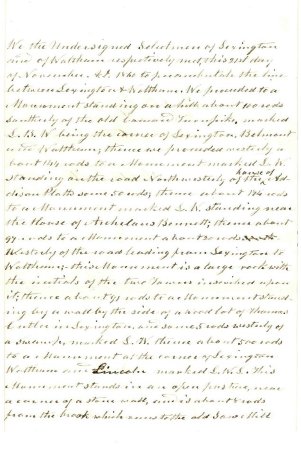 We the Undersigned Selectmen of Lexington
and of Waltham respectively met, this 21st day
of November A.D. 1860 to perambulate the line
between Lexington & Waltham. We proceeded to a
Monument standing on a hill about 100 rods
southerly of the old Concord Turnpike, marked
L.B.W being the corner of Lexington, Belmont
and Waltham; thence we proceeded westerly
about 144 rods to a Monument marked L.W.
standing on the road Northwesterly of the house of
Platts some 50 rods; thence about 124 rods
to a Monument marked L.W. standing near
the House of Archelaus Bennett; thence about
97 rods to a Monument about 20 rods
Westerly of the road leading from Lexington to
Waltham; this Monument is a large rock with
the initials of the two Towns inscribed upon
it; thence about 91 rods to a Monument stand
ing by a wall by the side of a wood lot of Thomas
Cutler in Lexington, and some 8 rods westerly of
a swamp, marked L.W. thence about 50 rods
to a Monument at the corner of Lexington
Waltham and Lincoln marked L.W.L. This
Monument stands in an open pasture, near
a corner of a stone wall, and is about 8 rods
from the brook which runs to the old Saw Mill